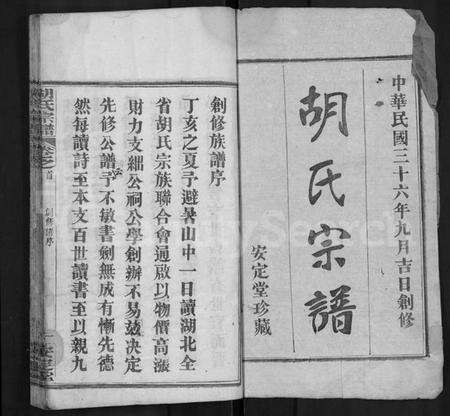 中華民國三十六年九月吉日創修
胡氏宗譜
安定堂珍藏
創修族譜序
丁亥之夏予避暑山中一日讀湖北全
省胡氏宗族聯合會通啟以物價高漲
財力支絀公祠公學創辦不易茲決定
先修公譜予不敏書劍無成有慚先德
然每讀詩至本文百世讀書至以親九
胡氏宗譜
卷之首
創修譜序
一
安定堂